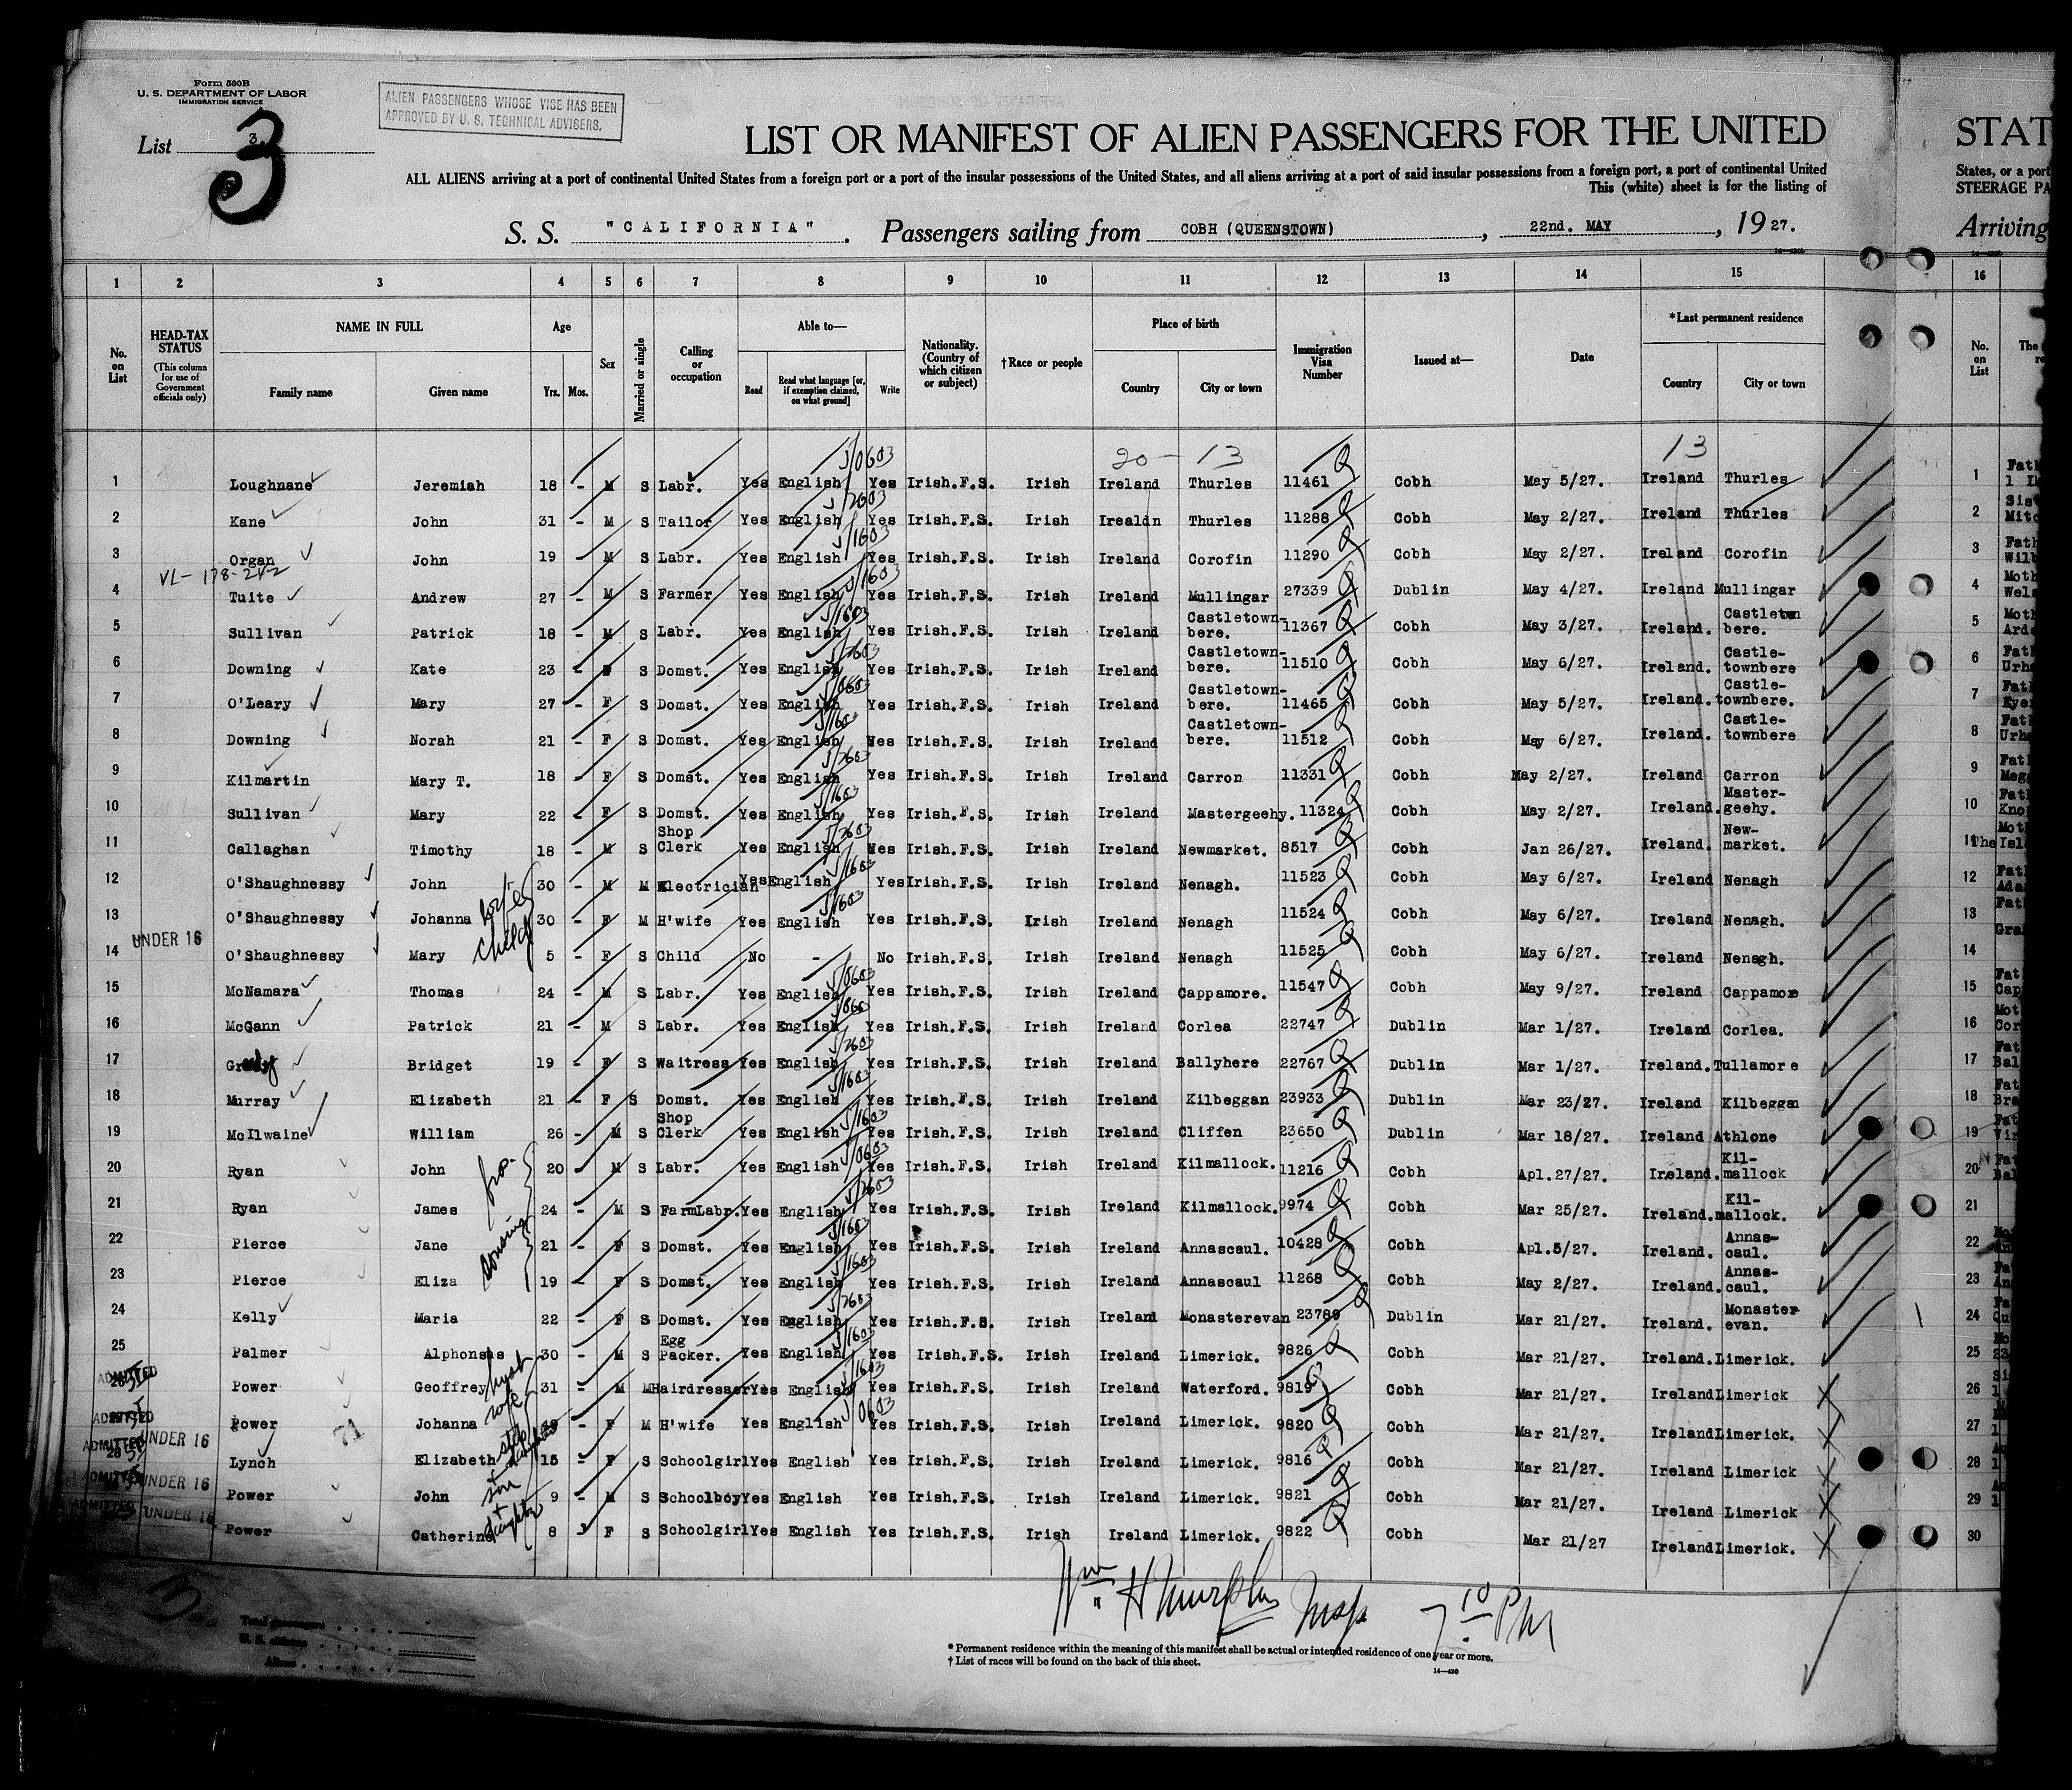 Form 500B
U. S. DEPARTMENT OF LABOR
IMMIGRATION SERVICE
ALIEN PASSENGERS WHOSE VISE HAS BEEN
APPROVED BY U. S. TECHNICAL ADVISERS.
List 3.
3
LIST OR MANIFEST OF ALIEN PASSENGERS FOR THE UNITED
STAT
ALL ALIENS arriving at a port of continental United States from a foreign port or a port of the insular possessions of the United States, and all aliens arriving at a port of said insular possessions from a foreign port, a port of continental United
States, or a port
This (white) sheet is for the listing of
STEERAGE PA
S. S. "CALIFORNIA". Passengers sailing from COBH (QUEENSTOWN), 22nd. MAY, 1927.
Arriving
1 2 3 4 5 6 7 8 9 10 11 12 13 14 15 16
No. on List
HEAD-TAX STATUS (This column for use of Government officials only)
NAME IN FULL Family name Given name
Age Yrs. Mos.
Sex
Married or single
Calling or occupation
Able to— Read Read what language [or, if exemption claimed, on what ground] Write
Nationality. (Country of which citizen or subject)
†Race or people
Place of birth Country City or town
Immigration Visa Number
Issued at—
Date
*Last permanent residence Country City or town
No. on List
20 - 13 13
1 Loughnane Jeremiah 18 - M S Labr. Yes English Yes Irish.F.S. Irish Ireland Thurles 11461 Cobh May 5/27. Ireland Thurles 1
2 Kane John 31 - M S Tailor Yes English Yes Irish.F.S. Irish Irealdn Thurles 11288 Cobh May 2/27. Ireland Thurles 2
3 Organ John 19 - M S Labr. Yes English Yes Irish.F.S. Irish Ireland Corofin 11290 Cobh May 2/27. Ireland Corofin 3
VL- 178-242
4 Tuite Andrew 27 - M S Farmer Yes English Yes Irish.F.S. Irish Ireland Mullingar 27339 Dublin May 4/27. Ireland Mullingar 4
5 Sullivan Patrick 18 - M S Labr. Yes English Yes Irish.F.S. Irish Ireland Castletown-bere. 11367 Cobh May 3/27. Ireland. Castleton bere. 5
6 Downing Kate 23 - F S Domst. Yes English Yes Irish.F.S. Irish Ireland Castletown-bere. 11510 Cobh May 6/27. Ireland. Castle-townbere 6
7 O'Leary Mary 27 - F S Domst. Yes English Yes Irish.F.S. Irish Ireland Castletown-bere. 11465 Cobh May 5/27. Ireland. Castle-townbere. 7
8 Downing Norah 21 - F S Domst. Yes English Yes Irish.F.S. Irish Ireland Castletown-bere. 11512 Cobh May 6/27. Ireland. Castle-townbere 8
9 Kilmartin Mary T. 18 - F S Domst. Yes English Yes Irish.F.S. Irish Ireland Carron 11331 Cobh May 2/27. Ireland Carron 9
10 Sullivan Mary 22 - F S Domst. Yes English Yes Irish.F.S. Irish Ireland Mastergeehy. 11324 Cobh May 2/27. Ireland. Master-geehy. 10
11 Callaghan Timothy 18 - M S Shop Clerk Yes English Yes Irish.F.S. Irish Ireland Newmarket. 8517 Cobh Jan 26/27. Ireland. New-market. 11
12 O'Shaughnessy John 30 - M M Electrician Yes English Yes Irish.F.S. Irish Ireland Nenagh. 11523 Cobh May 6/27. Ireland Nenagh 12
13 O'Shaughnessy Johanna wife 30 - F M H'wife Yes English Yes Irish.F.S. Irish Ireland Nenagh 11524 Cobh May 6/27. Ireland Nenagh. 13
UNDER 16
14 O'Shaughnessy Mary child 5 - F S Child No - No Irish.F.S. Irish Ireland Nenagh 11525 Cobh May 6/27. Ireland Nenagh. 14
15 McNamara Thomas 24 - M S Labr. Yes English Yes Irish.F.S. Irish Ireland Cappamore. 11547 Cobh May 9/27. Ireland Cappamore 15
16 McGann Patrick 21 - M S Labr. Yes English Yes Irish.F.S. Irish Ireland Corlea 22747 Dublin Mar 1/27. Ireland Corlea. 16
17 Bridget 19 - F S Waitress Yes English Yes Irish.F.S. Irish Ireland Ballyhere 22767 Dublin Mar 1/27. Ireland. Tullamore 17
18 Murray Elizabeth 21 - F S Domst. Yes English Yes Irish.F.S. Irish Ireland Kilbeggan 23933 Dublin Mar 23/27. Ireland Kilbeggan 18
19 McIlwaine William 26 - M S Shop Clerk Yes English Yes Irish.F.S. Irish Ireland Cliffen 23650 Dublin Mar 18/27. Ireland Athlone 19
20 Ryan John 20 - M S Labr. Yes English Yes Irish.F.S. Irish Ireland Kilmallock. 11216 Cobh Apl.27/27. Ireland. Kil-mallock 20
21 Ryan James 24 - M S FarmLabr. Yes English Yes Irish.F.S. Irish Ireland Kilmallock. 9974 Cobh Mar 25/27. Ireland. Kil-mallock. 21
22 Pierce Jane cousins 21 - F S Domst. Yes English Yes Irish.F.S. Irish Ireland Annascaul. 10428 Cobh Apl.5/27. Ireland. Annas-caul. 22
23 Pierce Eliza 19 - F S Domst. Yes English Yes Irish.F.S. Irish Ireland Annascaul 11268 Cobh May 2/27. Ireland. Annas-caul. 23
24 Kelly Maria 22 - F S Domst. Yes English Yes Irish.F.S. Irish Ireland Monasterevan 23789 Dublin Mar 21/27. Ireland. Monaster-evan. 24
25 Palmer Alphonsus 30 - M S Egg Packer. Yes English Yes Irish.F.S. Irish Ireland Limerick. 9826 Cobh Mar 21/27. Ireland. Limerick. 25
ADMITTED
26 Power Geoffrey husb 31 - M M Hairdresser Yes English Yes Irish.F.S. Irish Ireland Waterford. 9819 Cobh Mar 21/27. Ireland Limerick 26
ADMITTED
Power Johanna wife - F M H'wife Yes English Yes Irish.F.S. Irish Ireland Limerick. 9820 Cobh Mar 21/27. Ireland Limerick. 27
ADMITTED UNDER 16
28 Lynch Elizabeth step daughter 15 - F S Schoolgirl Yes English Yes Irish.F.S. Irish Ireland Limerick. 9816 Cobh Mar 21/27. Ireland Limerick 28
ADMITTED UNDER 16
Power John son 9 - M S Schoolboy Yes English Yes Irish.F.S. Irish Ireland Limerick. 9821 Cobh Mar 21/27. Ireland Limerick 29
ADMITTED UNDER 16
Power Catherine daughter 8 - F S Schoolgirl Yes English Yes Irish.F.S. Irish Ireland Limerick. 9822 Cobh Mar 21/27 Ireland Limerick. 30
Wm. H Murphy Insp 7.10 PM
3
Total passengers
U. S. citizens
Aliens
* Permanent residence within the meaning of this manifest shall be actual or intended residence of one year or more.
† List of races will be found on the back of this sheet.
14—430